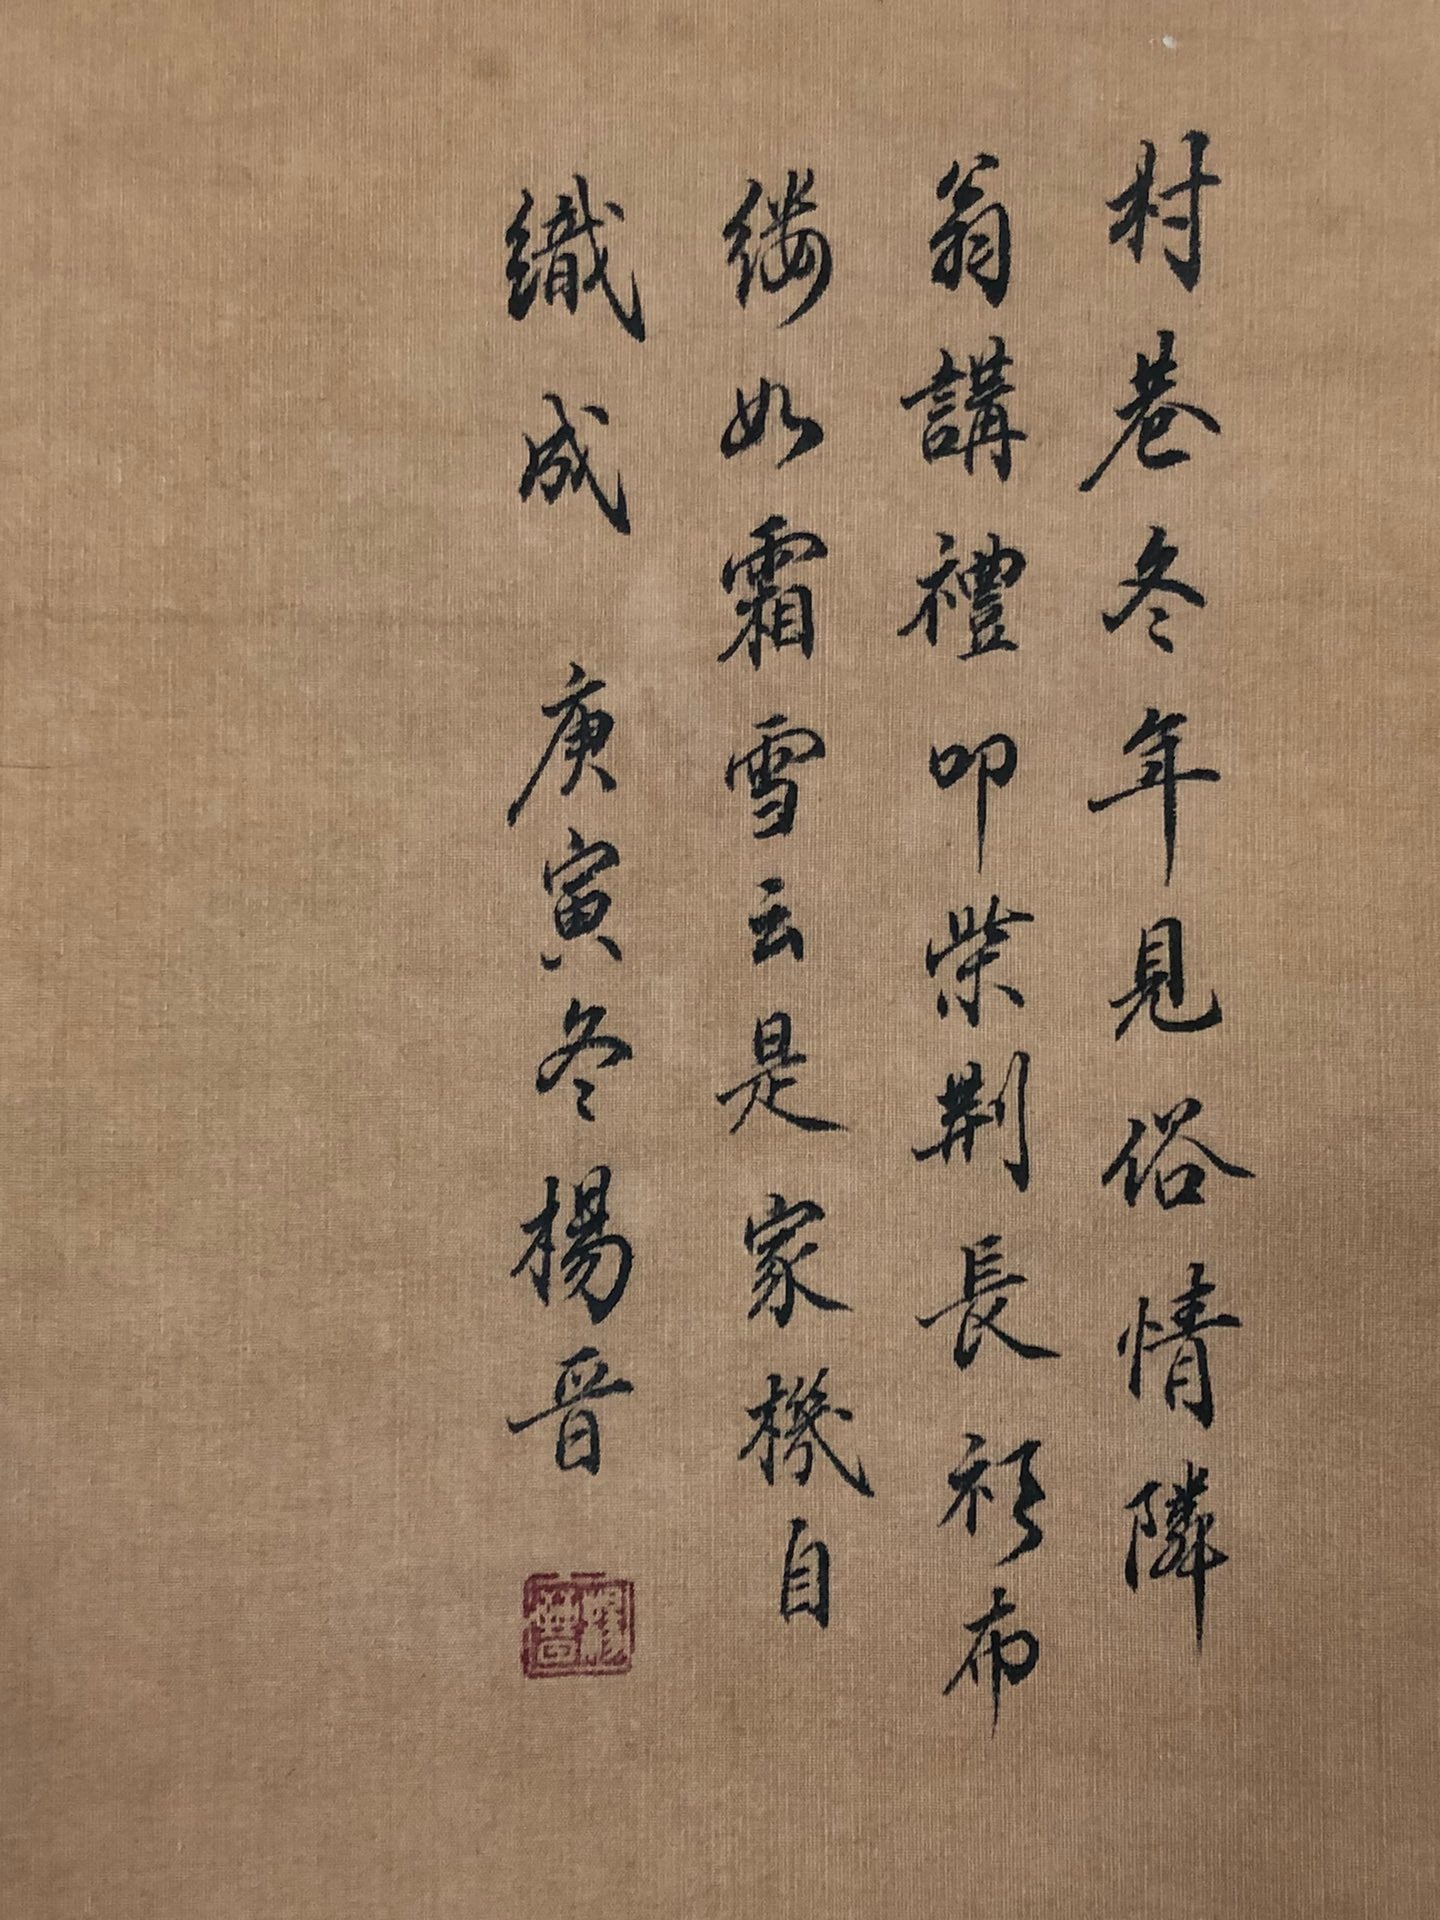 村巷冬年見俗情隣
翁講禮叩柴荆長衫布
縷如霜雪云是家機自
織成 庚寅冬楊晋
楊晉